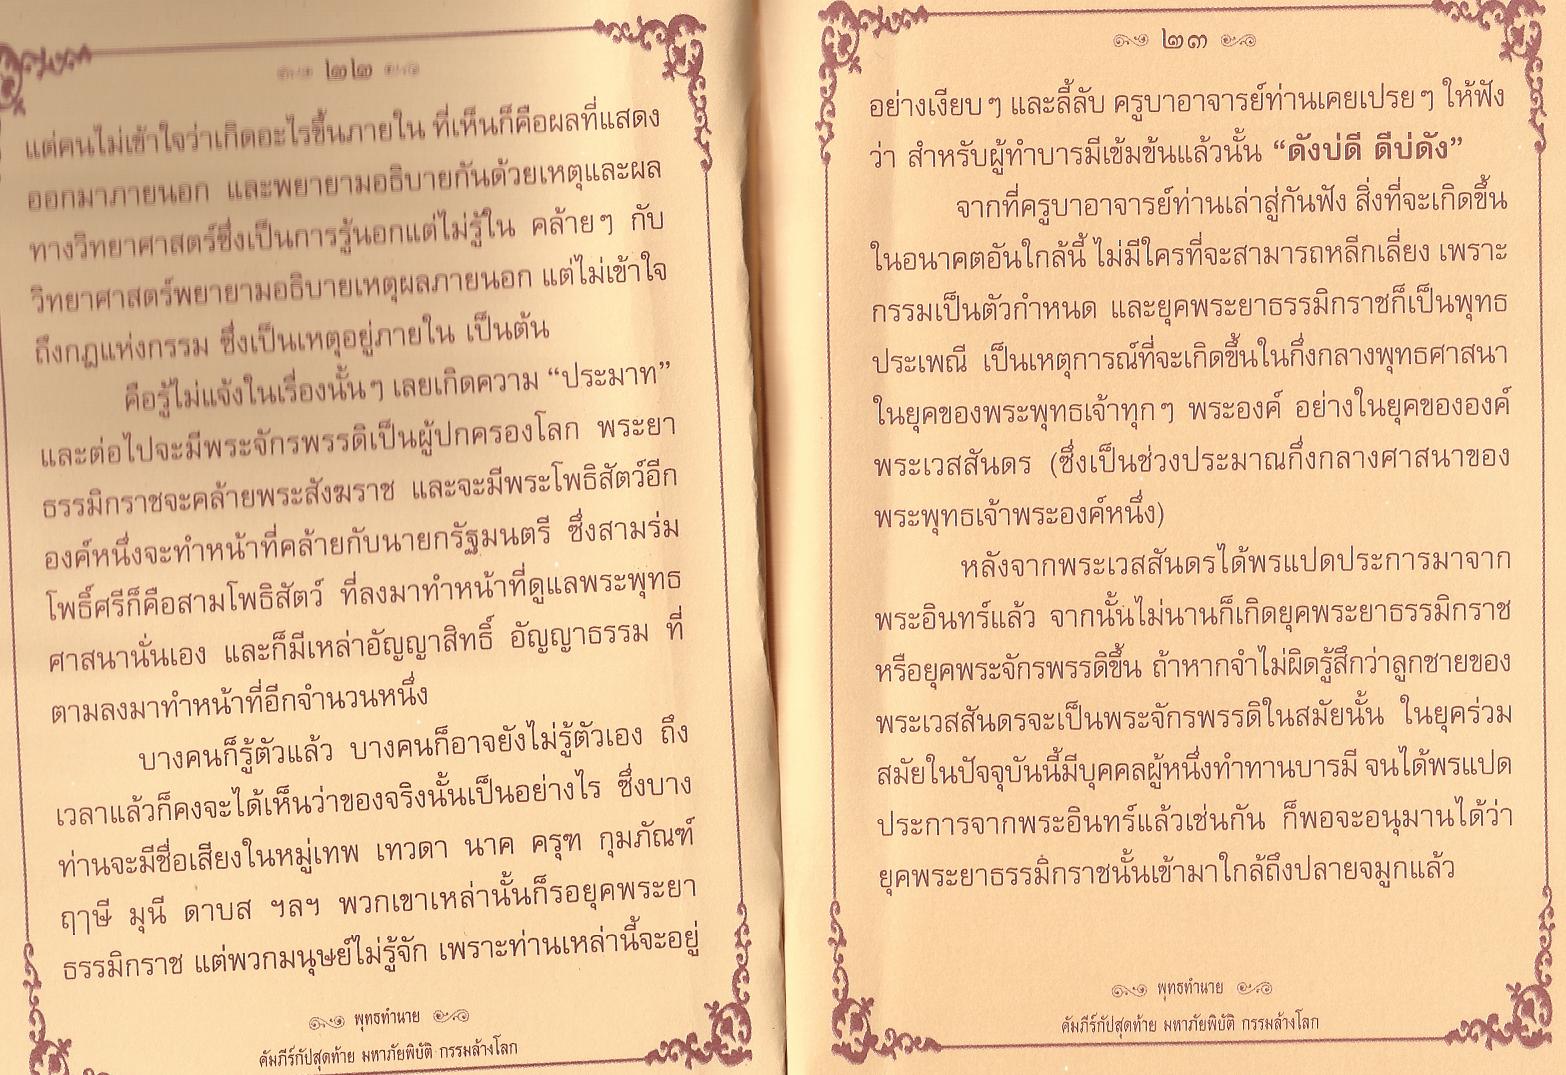 ๒๒
แต่คนไม่เข้าใจว่าเกิดอะไรขึ้นภายใน ที่เห็นก็คือผลที่แสดง
ออกมาภายนอก และพยายามอธิบายกันด้วยเหตุและผล
ทางวิทยาศาสตร์ซึ่งเป็นการรู้นอกแต่ไม่รู้ใน คล้ายๆ กับ
วิทยาศาสตร์พยายามอธิบายเหตุผลภายนอก แต่ไม่เข้าใจ
ถึงกฎแห่งกรรม ซึ่งเป็นเหตุอยู่ภายใน เป็นต้น
คือรู้ไม่แจ้งในเรื่องนั้นๆ เลยเกิดความ “ประมาท”
และต่อไปจะมีพระจักรพรรดิเป็นผู้ปกครองโลก พระยา
ธรรมิกราชจะคล้ายพระสังฆราช และจะมีพระโพธิสัตว์อีก
องค์หนึ่งจะทำหน้าที่คล้ายกับนายกรัฐมนตรี ซึ่งสามร่ม
โพธิ์ศรีก็คือสามโพธิสัตว์ ที่ลงมาทำหน้าที่ดูแลพระพุทธ
ศาสนานั่นเอง และก็มีเหล่าอัญญาสิทธิ์ อัญญาธรรม ที่
ตามลงมาทำหน้าที่อีกจำนวนหนึ่ง
บางคนก็รู้ตัวแล้ว บางคนก็อาจยังไม่รู้ตัวเอง ถึง
เวลาแล้วก็คงจะได้เห็นว่าของจริงนั้นเป็นอย่างไร ซึ่งบาง
ท่านจะมีชื่อเสียงในหมู่เทพ เทวดา นาค ครุฑ กุมภัณฑ์
ฤๅษี มุนี ดาบส ฯลฯ พวกเขาเหล่านั้นก็รอยุคพระยา
ธรรมิกราช แต่พวกมนุษย์ไม่รู้จัก เพราะท่านเหล่านี้จะอยู่
พุทธทำนาย
คัมภีร์กัปสุดท้าย มหาภัยพิบัติ กรรมล้างโลก
๒๓
อย่างเงียบๆ และลี้ลับ ครูบาอาจารย์ท่านเคยเปรยๆ ให้ฟัง
ว่า สำหรับผู้ทำบารมีเข้มข้นแล้วนั้น “ดังบ่ดี ดีบ่ดัง”
จากที่ครูบาอาจารย์ท่านเล่าสู่กันฟัง สิ่งที่จะเกิดขึ้น
ในอนาคตอันใกล้นี้ ไม่มีใครที่จะสามารถหลีกเลี่ยง เพราะ
กรรมเป็นตัวกำหนด และยุคพระยาธรรมิกราชก็เป็นพุทธ
ประเพณี เป็นเหตุการณ์ที่จะเกิดขึ้นในกึ่งกลางพุทธศาสนา
ในยุคของพระพุทธเจ้าทุกๆ พระองค์ อย่างในยุคขององค์
พระเวสสันดร (ซึ่งเป็นช่วงประมาณกึ่งกลางศาสนาของ
พระพุทธเจ้าพระองค์หนึ่ง)
หลังจากพระเวสสันดรได้พรแปดประการมาจาก
พระอินทร์แล้ว จากนั้นไม่นานก็เกิดยุคพระยาธรรมิกราช
หรือยุคพระจักรพรรดิขึ้น ถ้าหากจำไม่ผิดรู้สึกว่าลูกชายของ
พระเวสสันดรจะเป็นพระจักรพรรดิในสมัยนั้น ในยุคร่วม
สมัยในปัจจุบันนี้มีบุคคลผู้หนึ่งทำทานบารมี จนได้พรแปด
ประการจากพระอินทร์แล้วเช่นกัน ก็พอจะอนุมานได้ว่า
ยุคพระยาธรรมิกราชนั้นเข้ามาใกล้ถึงปลายจมูกแล้ว
พุทธทำนาย
คัมภีร์กัปสุดท้าย มหาภัยพิบัติ กรรมล้างโลก